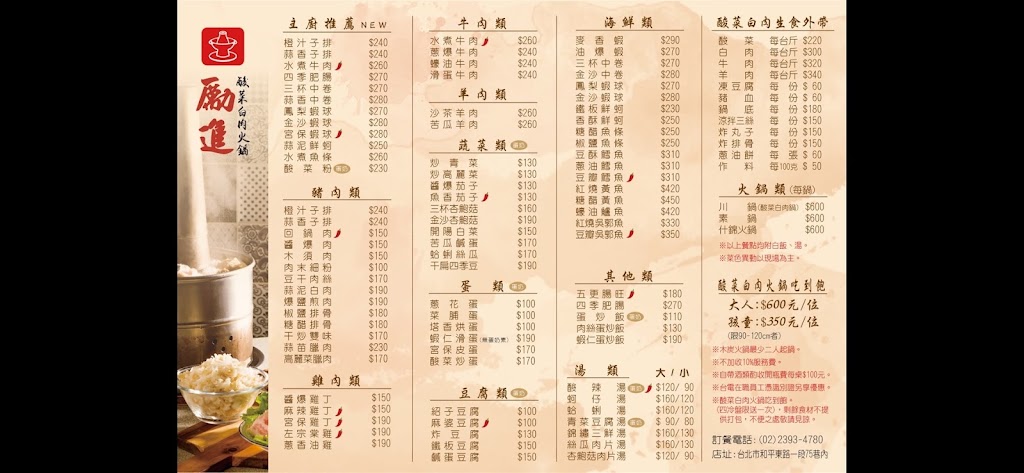 勵進
酸菜白肉火鍋
主廚推薦 NEW
橙汁子排 $240
蒜香子排 $240
水煮牛肉 $260
四季肥腸 $270
三杯中卷 $270
蒜香中卷 $280
鳳梨蝦球 $270
金沙蝦球 $280
宮保蝦球 $280
蒜泥鮮蚵 $250
水煮魚條 $260
酸菜粉 $230
豬肉類
橙汁子排 $240
蒜香子排 $240
回鍋肉 $150
醬爆肉 $150
木須肉 $150
肉末細粉 $100
豆干肉絲 $170
蒜泥白肉 $190
爆鹽煎肉 $190
椒鹽排骨 $180
糖醋排骨 $180
干炒雙味 $170
蒜苗臘肉 $230
高麗菜臘肉 $170
雞肉類
醬爆雞丁 $150
麻辣雞丁 $150
宮保雞丁 $190
左宗棠雞 $190
蔥香油雞 $190
牛肉類
水煮牛肉 $260
蔥爆牛肉 $240
蠔油牛肉 $240
滑蛋牛肉 $240
羊肉類
沙茶羊肉 $260
苦瓜羊肉 $260
蔬菜類
炒青菜 $130
炒高麗菜 $130
醬爆茄子 $130
魚香茄子 $130
三杯杏鮑菇 $160
金沙杏鮑菇 $190
開陽白菜 $150
苦瓜鹹蛋 $170
蛤蜊絲瓜 $170
干扁四季豆 $190
蛋類
蔥花蛋 $100
菜脯蛋 $100
塔香烘蛋 $100
蝦仁滑蛋 $190
宮保皮蛋 $170
酸菜炒蛋 $170
豆腐類
紹子豆腐 $100
麻婆豆腐 $100
炸豆腐 $130
鐵板豆腐 $150
鹹蛋豆腐 $150
海鮮類
麥香蝦 $290
油爆蝦 $270
三杯中卷 $270
金沙中卷 $280
鳳梨蝦球 $270
金沙蝦球 $280
鐵板鮮蚵 $210
香酥鮮蚵 $250
糖醋魚條 $250
椒鹽魚條 $250
豆酥鱈魚 $310
蔥油鱈魚 $310
豆瓣鱈魚 $310
紅燒黃魚 $420
糖醋黃魚 $450
蠔油鱸魚 $420
紅燒吳郭魚 $330
豆瓣吳郭魚 $350
其他類
五更腸旺 $180
四季肥腸 $270
蛋炒飯 $110
肉絲蛋炒飯 $130
蝦仁蛋炒飯 $190
湯類 大/小
酸辣湯 $120/ 90
蚵仔湯 $160/120
蛤蜊湯 $160/120
青菜豆腐湯 $ 90/ 80
錦鏽三鮮湯 $160/130
絲瓜肉片湯 $160/130
杏鮑菇肉片湯 $120/ 90
酸菜白肉生食外帶
酸菜 每台斤 $220
白肉 每台斤 $320
牛肉 每台斤 $320
羊肉 每台斤 $340
凍豆腐 每份 $ 60
豬血 每份 $ 60
鍋底 每份 $180
涼拌三絲 每份 $150
炸丸子 每份 $150
炸排骨 每份 $150
蔥油餅 每張 $ 60
作料 每100克 $ 50
火鍋類(每鍋)
川鍋(酸菜白肉鍋) $600
素鍋 $600
什錦火鍋 $600
※以上餐點均附白飯、湯。
※菜色異動以現場為主。
酸菜白肉火鍋吃到飽
大人:$600元/位
孩童:$350元/位
(限90-120cm者)
※木炭火鍋最少二人起鍋。
※不加收10%服務費。
※自帶酒類酌收開瓶費每桌$100元。
※台電在職員工憑識別證另享優惠。
※酸菜白肉火鍋吃到飽。
(四冷盤限送一次),剩餘食材不提
供打包,不便之處敬請見諒。
訂餐電話:(02)2393-4780
店址:台北市和平東路一段75巷內